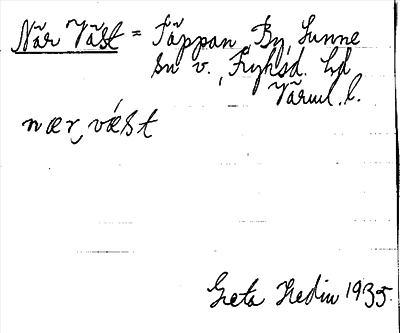 När Väst = Täppan, By, Sunne
sn v., Fryksd. hd
Värml. l.
nær, væst
Greta Hedin 1935.